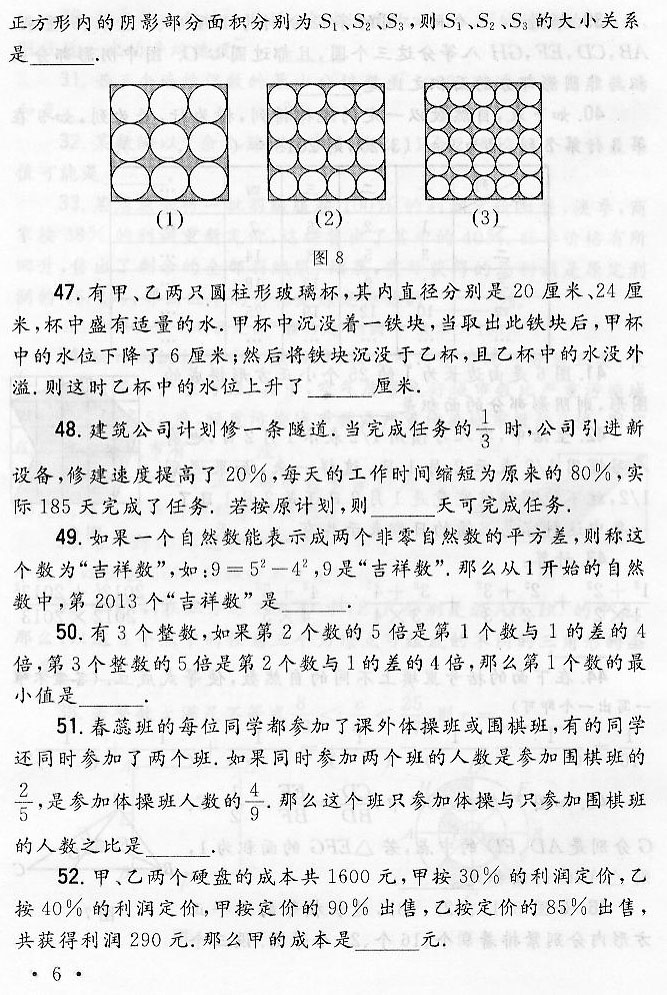 正方形内的阴影部分面积分别为 S₁、S₂、S₃,则 S₁、S₂、S₃ 的大小关系
是______.
(1) (2) (3)
图 8
47. 有甲、乙两只圆柱形玻璃杯,其内直径分别是 20 厘米、24 厘
米,杯中盛有适量的水.甲杯中沉没着一铁块,当取出此铁块后,甲杯
中的水位下降了 6 厘米;然后将铁块沉没于乙杯,且乙杯中的水没外
溢.则这时乙杯中的水位上升了______厘米.
48. 建筑公司计划修一条隧道.当完成任务的 1/3 时,公司引进新
设备,修建速度提高了 20%,每天的工作时间缩短为原来的 80%,实
际 185 天完成了任务. 若按原计划,则______天可完成任务.
49. 如果一个自然数能表示成两个非零自然数的平方差,则称这
个数为“吉祥数”,如:9=5²-4²,9 是“吉祥数”.那么从 1 开始的自然
数中,第 2013 个“吉祥数”是______.
50. 有 3 个整数,如果第 2 个数的 5 倍是第 1 个数与 1 的差的 4
倍,第 3 个整数的 5 倍是第 2 个数与 1 的差的 4 倍,那么第 1 个数的最
小值是______.
51. 春蕊班的每位同学都参加了课外体操班或围棋班,有的同学
还同时参加了两个班.如果同时参加两个班的人数是参加围棋班的
2/5,是参加体操班人数的 4/9.那么这个班只参加体操与只参加围棋班
的人数之比是______.
52. 甲、乙两个硬盘的成本共 1600 元,甲按 30% 的利润定价,乙
按 40% 的利润定价,甲按定价的 90% 出售,乙按定价的 85% 出售,
共获得利润 290 元.那么甲的成本是______元.
· 6 ·